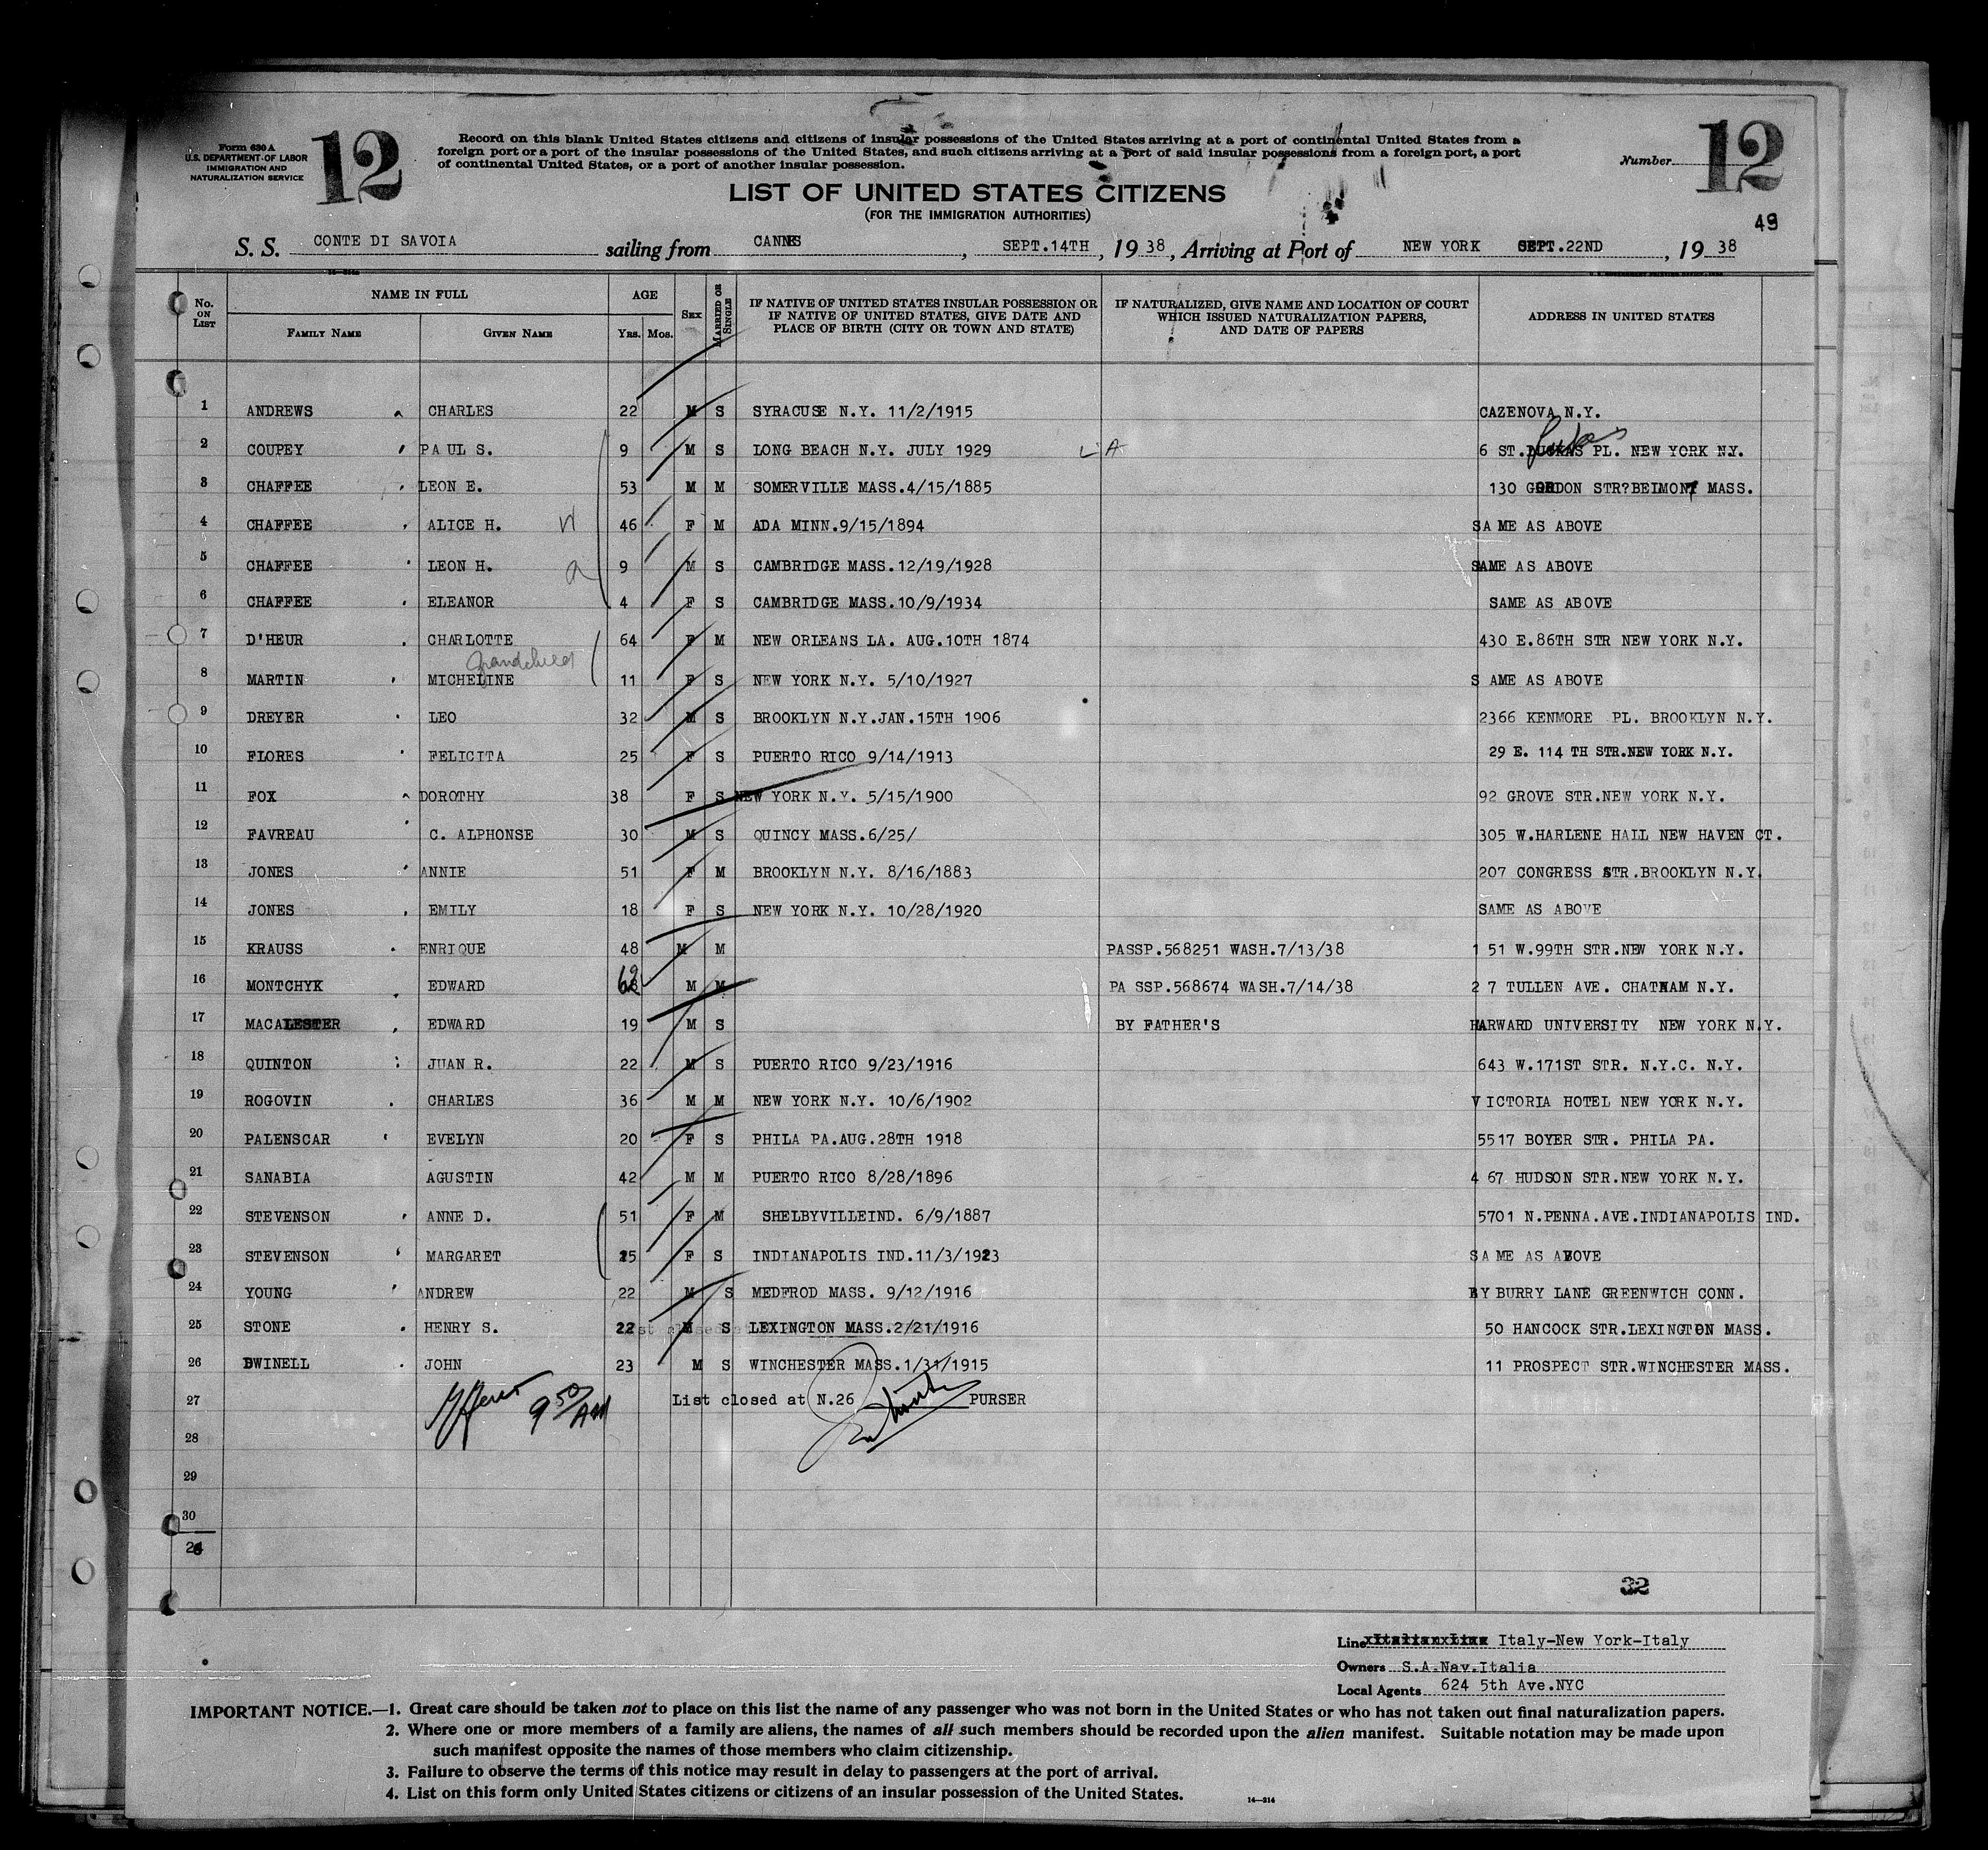 Form 630 A
U.S. DEPARTMENT OF LABOR
IMMIGRATION AND
NATURALIZATION SERVICE
12
Record on this blank United States citizens and citizens of insular possessions of the United States arriving at a port of continental United States from a
foreign port or a port of the insular possessions of the United States, and such citizens arriving at a port of said insular possessions from a foreign port, a port
of continental United States, or a port of another insular possession.
Number 12
LIST OF UNITED STATES CITIZENS
(FOR THE IMMIGRATION AUTHORITIES)
49
S. S. CONTE DI SAVOIA sailing from CANNES, SEPT.14TH, 1938, Arriving at Port of NEW YORK SEPT.22ND, 1938
No. ON LIST NAME IN FULL FAMILY NAME GIVEN NAME AGE Yrs. Mos. SEX MARRIED OR SINGLE
IF NATIVE OF UNITED STATES INSULAR POSSESSION OR IF NATIVE OF UNITED STATES, GIVE DATE AND PLACE OF BIRTH (CITY OR TOWN AND STATE)
IF NATURALIZED, GIVE NAME AND LOCATION OF COURT WHICH ISSUED NATURALIZATION PAPERS, AND DATE OF PAPERS
ADDRESS IN UNITED STATES
1 ANDREWS CHARLES 22 M S SYRACUSE N.Y. 11/2/1915 CAZENOVA N.Y.
2 COUPEY PAUL S. 9 M S LONG BEACH N.Y. JULY 1929 A 6 ST. Lukes PL. NEW YORK N.Y.
3 CHAFFEE LEON E. 53 M M SOMERVILLE MASS.4/15/1885 130 GORDON STR?BELMONT MASS.
4 CHAFFEE ALICE H. W 46 F M ADA MINN.9/15/1894 SAME AS ABOVE
5 CHAFFEE LEON H. a 9 M S CAMBRIDGE MASS.12/19/1928 SAME AS ABOVE
6 CHAFFEE ELEANOR 4 F S CAMBRIDGE MASS.10/9/1934 SAME AS ABOVE
7 D'HEUR CHARLOTTE 64 F M NEW ORLEANS LA. AUG.10TH 1874 430 E.86TH STR NEW YORK N.Y.
Grandchild
8 MARTIN MICHELINE 11 F S NEW YORK N.Y. 5/10/1927 S AME AS ABOVE
9 DREYER LEO 32 M S BROOKLYN N.Y.JAN.15TH 1906 2366 KENMORE PL. BROOKLYN N.Y.
10 FLORES FELICITA 25 F S PUERTO RICO 9/14/1913 29 E. 114 TH STR.NEW YORK N.Y.
11 FOX DOROTHY 38 F S NEW YORK N.Y. 5/15/1900 92 GROVE STR.NEW YORK N.Y.
12 FAVREAU C. ALPHONSE 30 M S QUINCY MASS.6/25/ 305 W.HARLENE HALL NEW HAVEN CT.
13 JONES ANNIE 51 F M BROOKLYN N.Y. 8/16/1883 207 CONGRESS STR.BROOKLYN N.Y.
14 JONES EMILY 18 F S NEW YORK N.Y. 10/28/1920 SAME AS ABOVE
15 KRAUSS ENRIQUE 48 M M PASSP.568251 WASH.7/13/38 1 51 W.99TH STR.NEW YORK N.Y.
16 MONTCHYK EDWARD 62 M M PA SSP.568674 WASH.7/14/38 2 7 TULLEN AVE. CHATHAM N.Y.
17 MACALESTER EDWARD 19 M S BY FATHER'S HARWARD UNIVERSITY NEW YORK N.Y.
18 QUINTON JUAN R. 22 M S PUERTO RICO 9/23/1916 643 W.171ST STR. N.Y.C. N.Y.
19 ROGOVIN CHARLES 36 M M NEW YORK N.Y. 10/6/1902 VICTORIA HOTEL NEW YORK N.Y.
20 PALENSCAR EVELYN 20 F S PHILA PA.AUG.28TH 1918 5517 BOYER STR. PHILA PA.
21 SANABIA AGUSTIN 42 M M PUERTO RICO 8/28/1896 4 67 HUDSON STR.NEW YORK N.Y.
22 STEVENSON ANNE D. 51 F M SHELBYVILLEIND. 6/9/1887 5701 N.PENNA.AVE.INDIANAPOLIS IND.
23 STEVENSON MARGARET 15 F S INDIANAPOLIS IND.11/3/1923 SAME AS ABOVE
24 YOUNG ANDREW 22 M S MEDFROD MASS. 9/12/1916 BY BURRY LANE GREENWICH CONN.
25 STONE HENRY S. 22 M S LEXINGTON MASS.2/21/1916 50 HANCOCK STR.LEXINGTON MASS.
26 DWINELL JOHN 23 M S WINCHESTER MASS.1/31/1915 11 PROSPECT STR.WINCHESTER MASS.
27 9 50 AM List closed at N.26 PURSER
28
29
30
26
32
Line Italian Line Italy-New York-Italy
Owners S.A.Nav.Italia
Local Agents 624 5th Ave.NYC
IMPORTANT NOTICE.—1. Great care should be taken not to place on this list the name of any passenger who was not born in the United States or who has not taken out final naturalization papers.
2. Where one or more members of a family are aliens, the names of all such members should be recorded upon the alien manifest. Suitable notation may be made upon
such manifest opposite the names of those members who claim citizenship.
3. Failure to observe the terms of this notice may result in delay to passengers at the port of arrival.
4. List on this form only United States citizens or citizens of an insular possession of the United States.
14—214